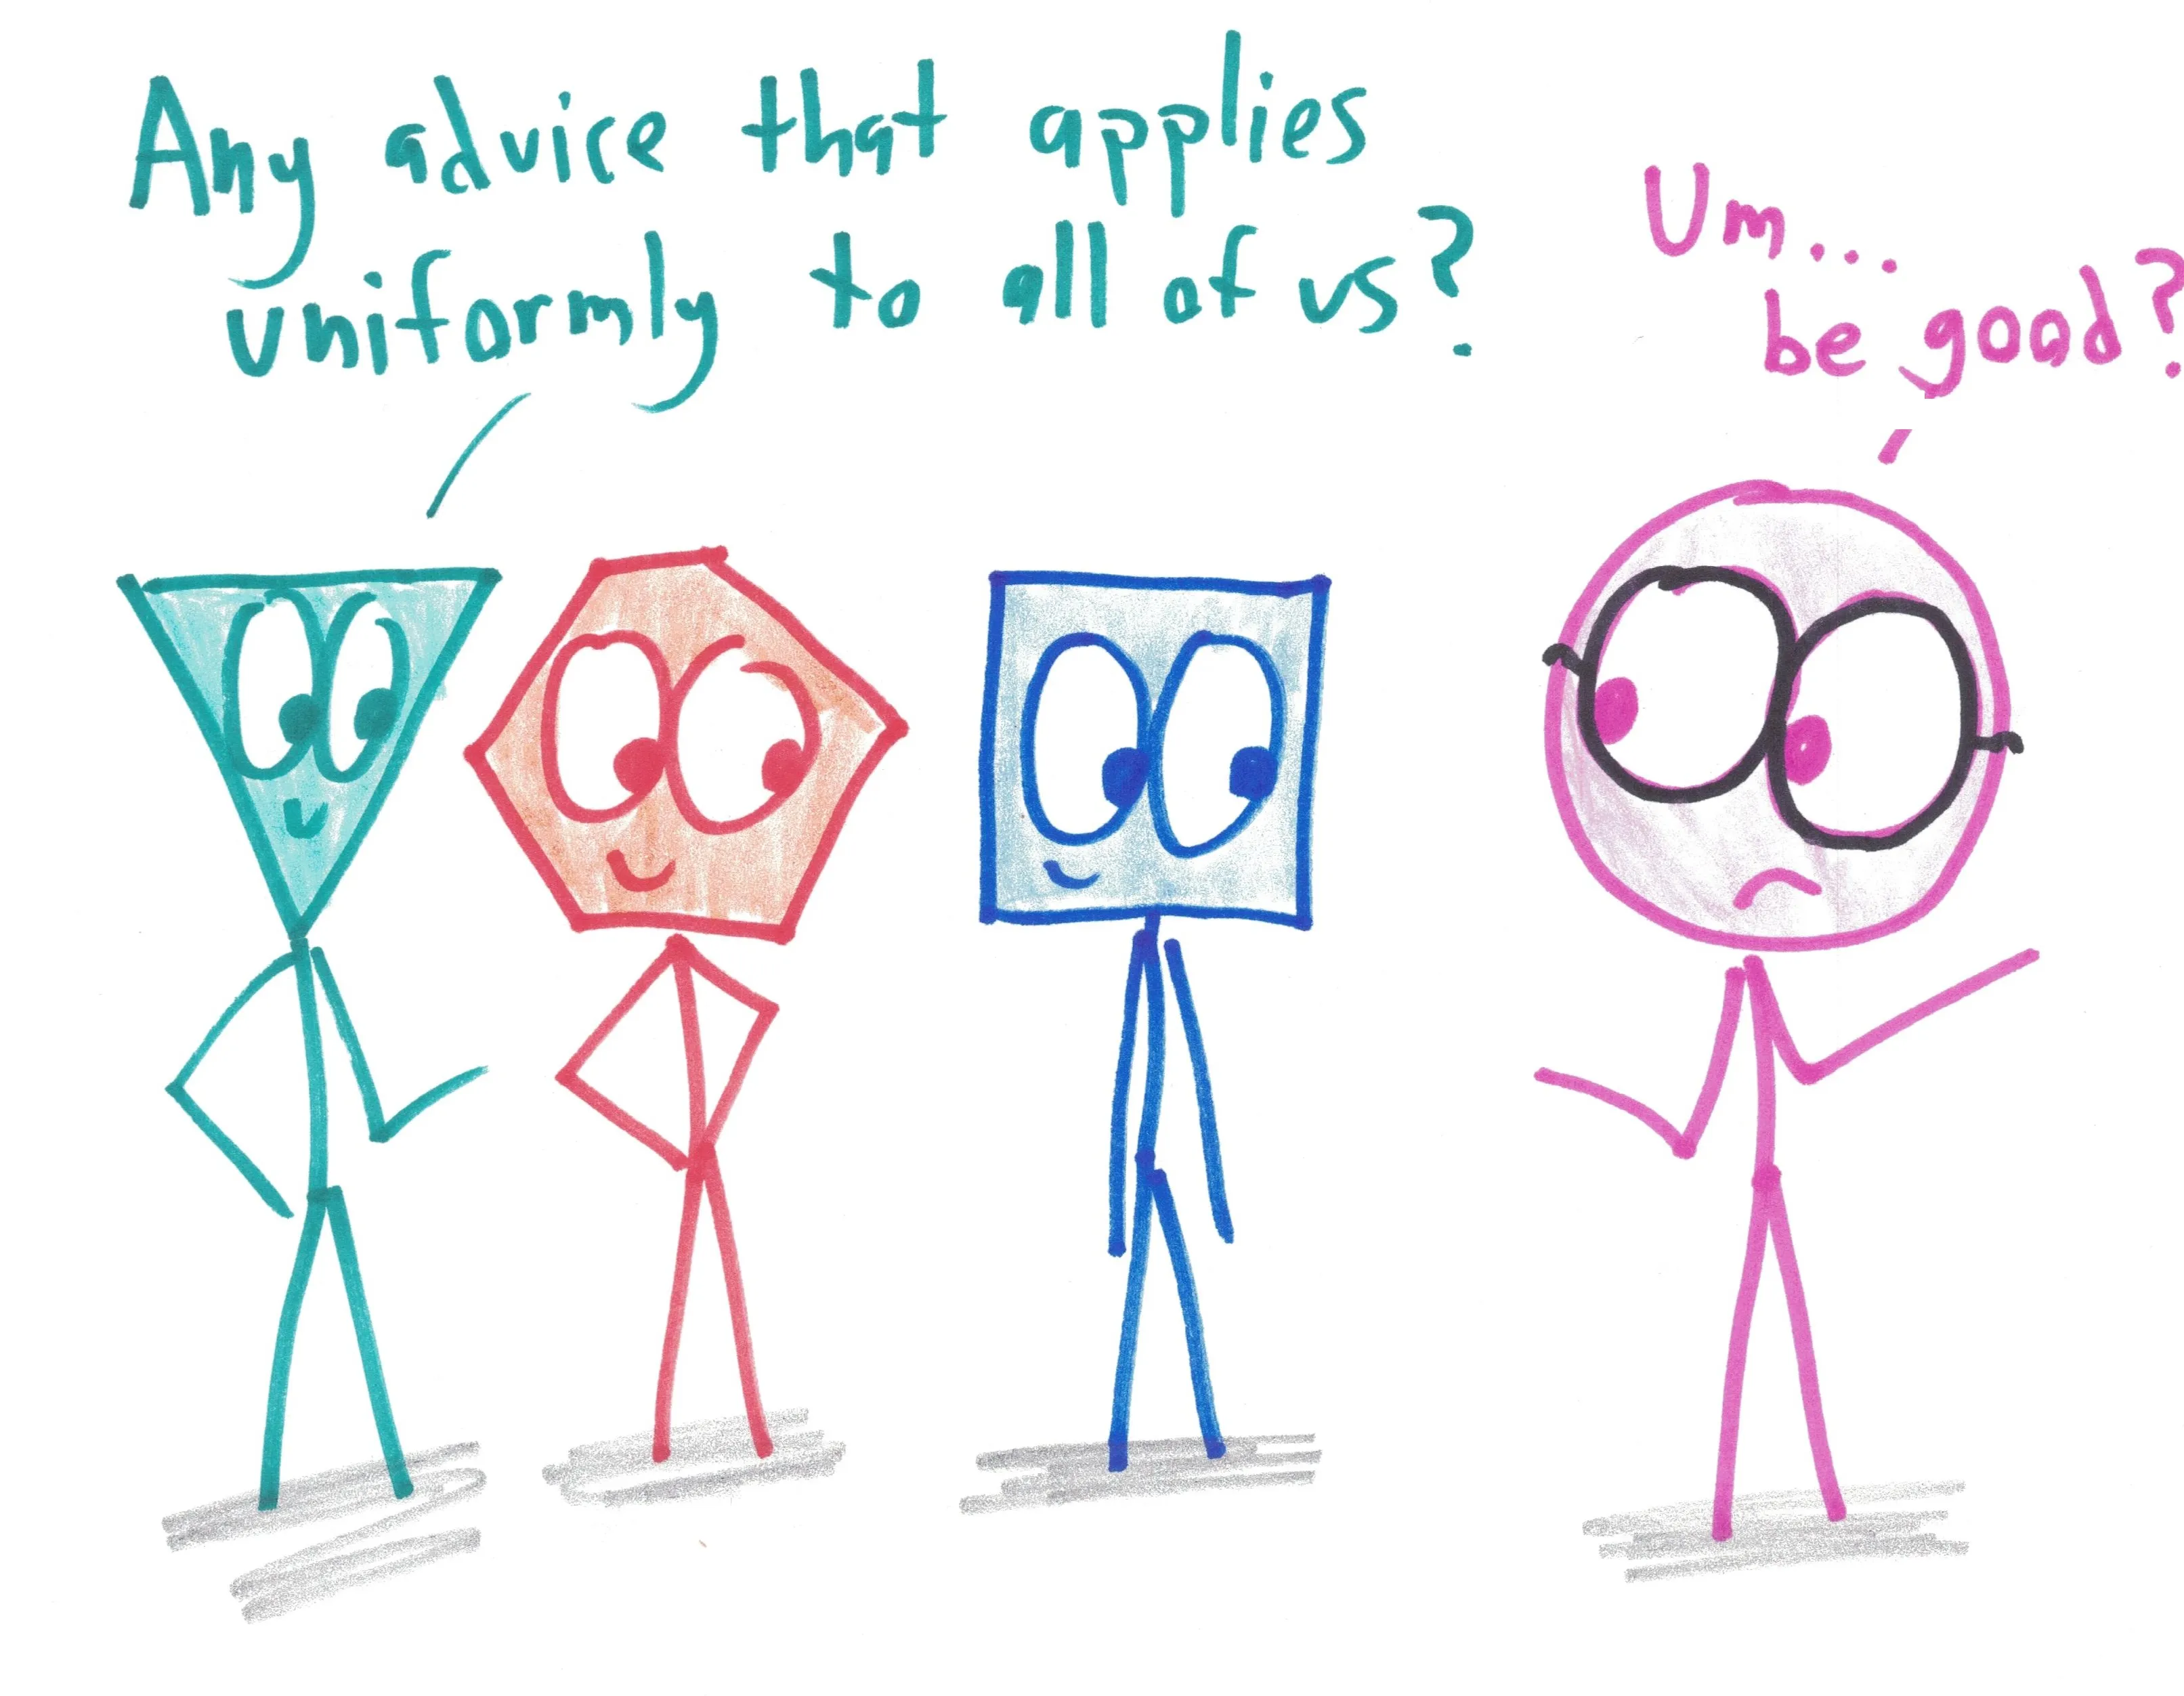 Any advice that applies
uniformly to all of us?
Um...
be good?